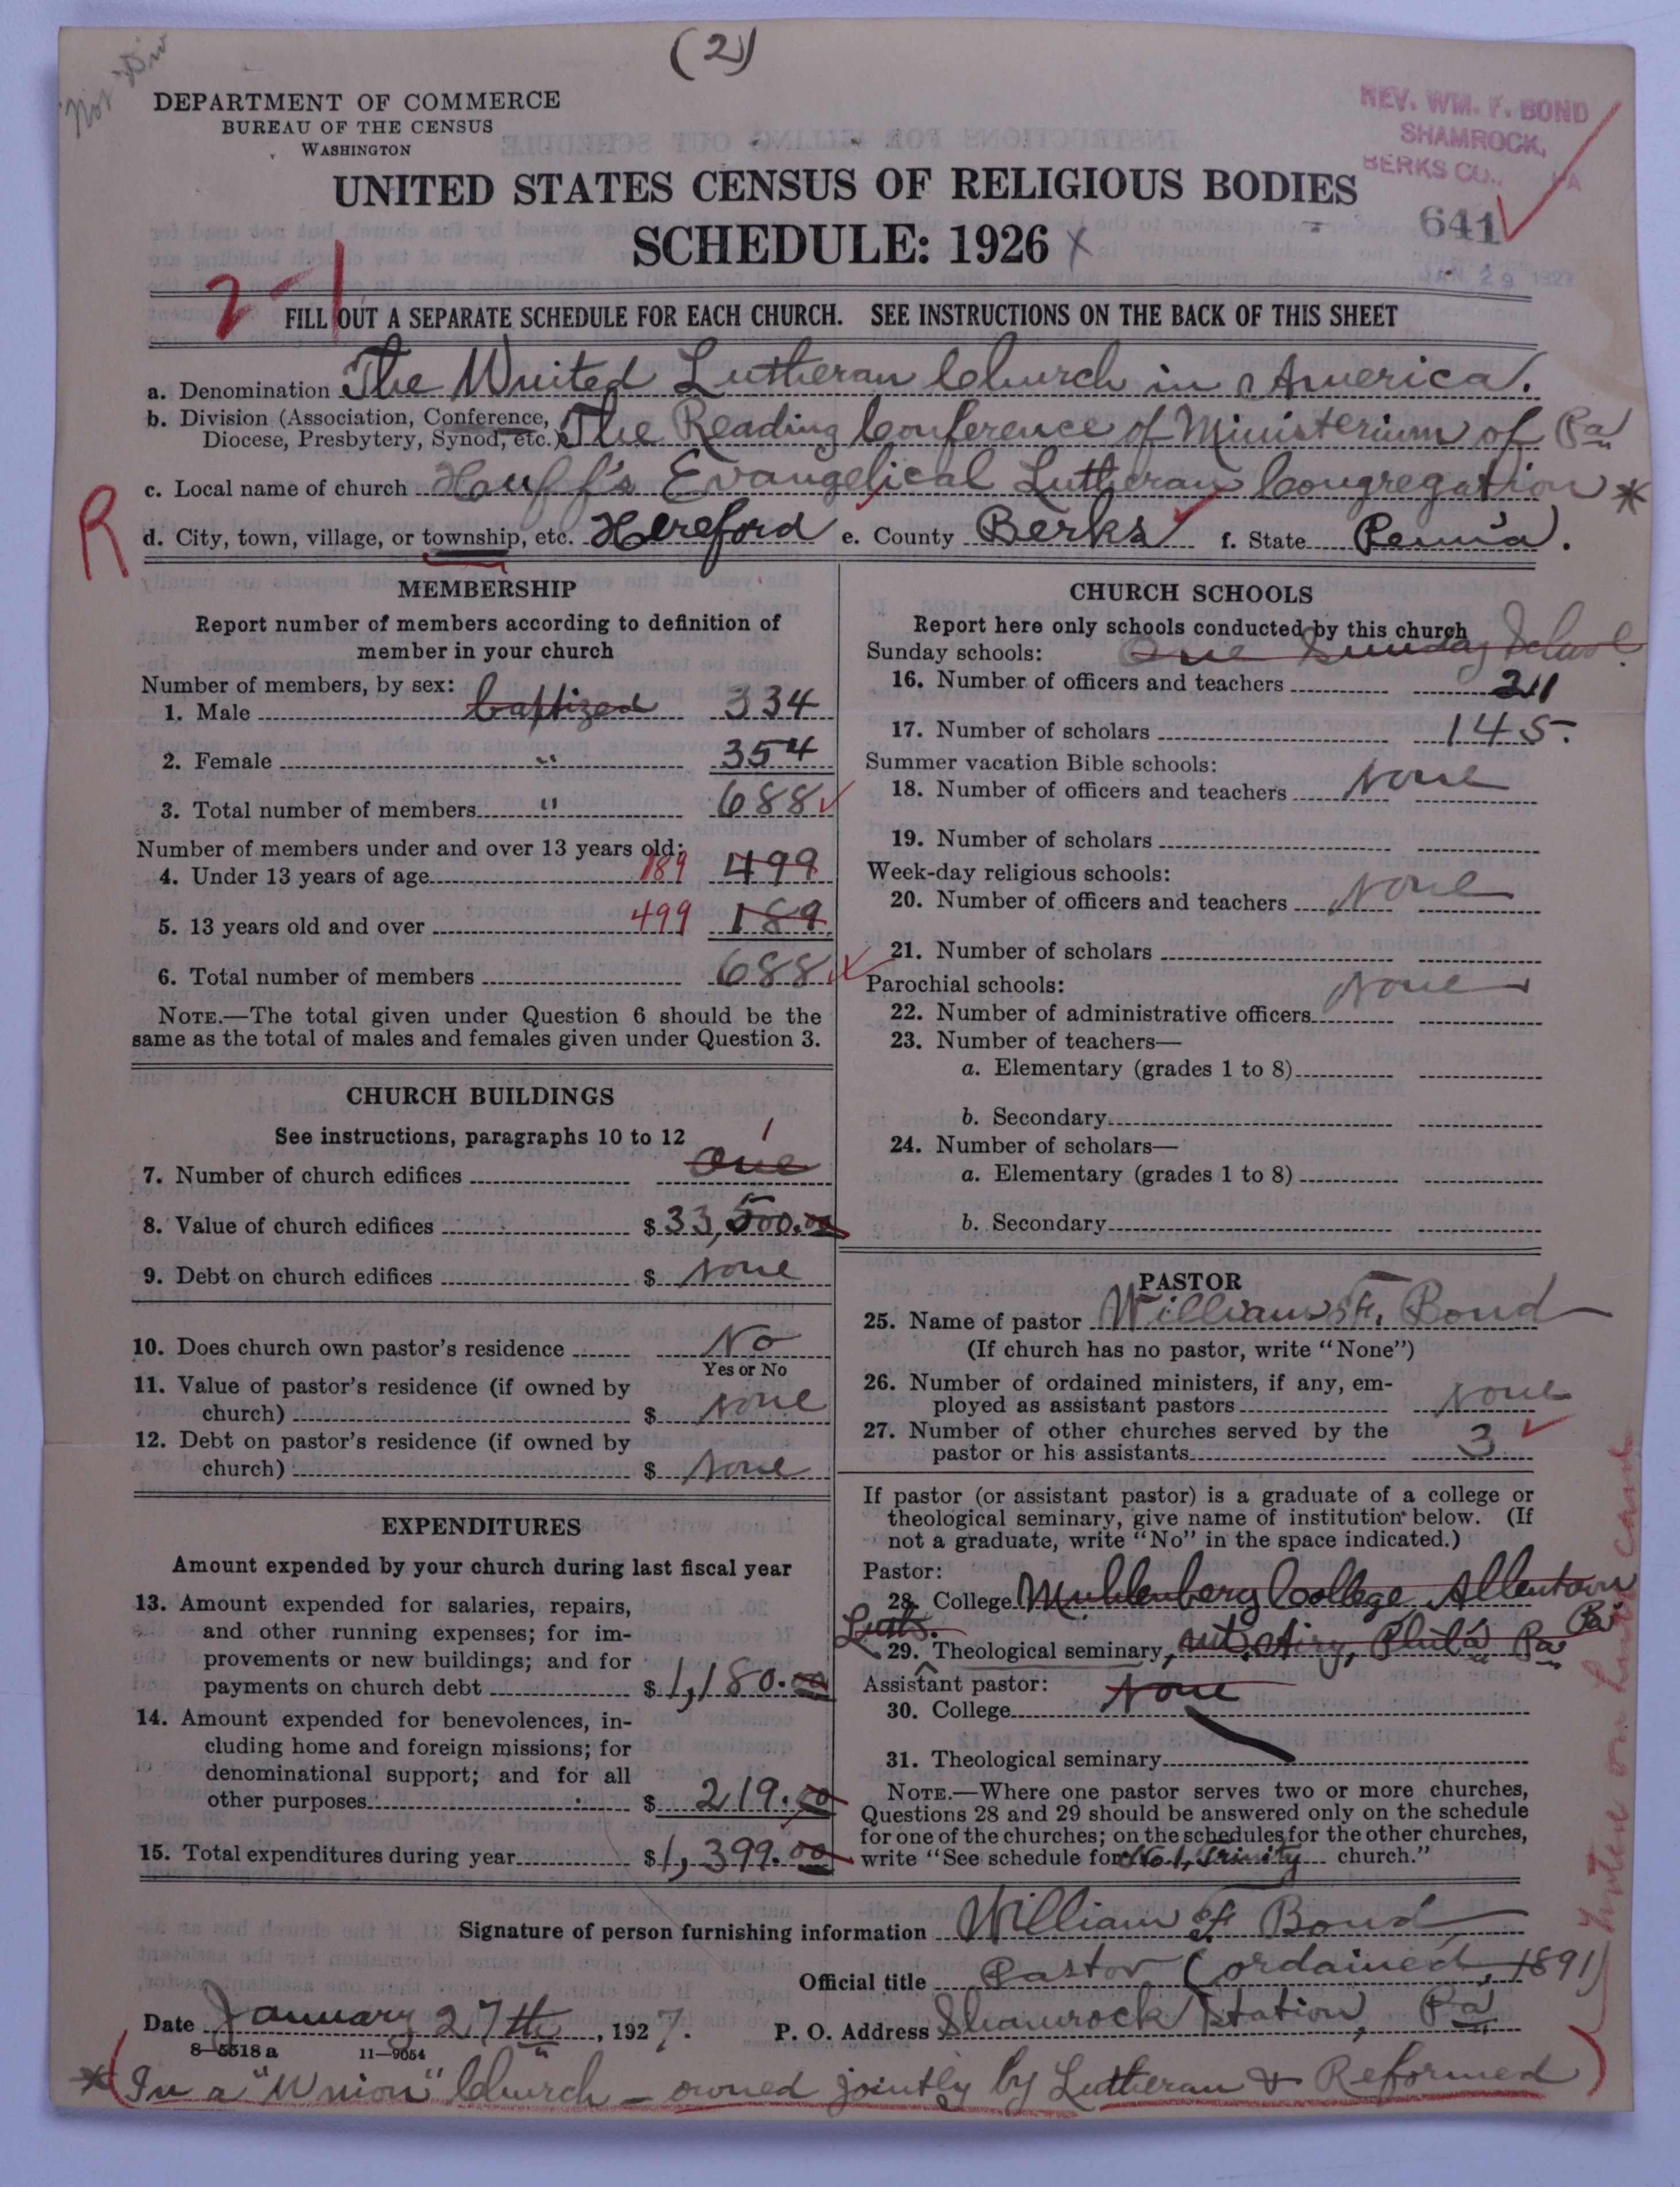 (2)
Not Div
DEPARTMENT OF COMMERCE
BUREAU OF THE CENSUS
WASHINGTON
REV. WM. F. BOND
SHAMROCK,
BERKS CO., PA
UNITED STATES CENSUS OF RELIGIOUS BODIES
SCHEDULE: 1926 x
641
JAN 29 1927
2-1
FILL OUT A SEPARATE SCHEDULE FOR EACH CHURCH. SEE INSTRUCTIONS ON THE BACK OF THIS SHEET
a. Denomination The United Lutheran Church in America.
b. Division (Association, Conference, Diocese, Presbytery, Synod, etc.) The Reading Conference of Ministerium of Pa
c. Local name of church Houff's Evangelical Lutheran Congregation *
R
d. City, town, village, or township, etc. Hereford e. County Berks f. State Penn'a.
MEMBERSHIP
Report number of members according to definition of member in your church
Number of members, by sex:
1. Male baptized 334
2. Female " 354
3. Total number of members " 688
Number of members under and over 13 years old:
4. Under 13 years of age 189 499
5. 13 years old and over 499 189
6. Total number of members 688
NOTE.—The total given under Question 6 should be the
same as the total of males and females given under Question 3.
CHURCH BUILDINGS
See instructions, paragraphs 10 to 12
1
7. Number of church edifices One
8. Value of church edifices $33,500.00
9. Debt on church edifices $ None
10. Does church own pastor's residence No
Yes or No
11. Value of pastor's residence (if owned by
church) $ None
12. Debt on pastor's residence (if owned by
church) $ None
EXPENDITURES
Amount expended by your church during last fiscal year
13. Amount expended for salaries, repairs,
and other running expenses; for im-
provements or new buildings; and for
payments on church debt $1,180.00
14. Amount expended for benevolences, in-
cluding home and foreign missions; for
denominational support; and for all
other purposes $ 219.00
15. Total expenditures during year $1,399.00
CHURCH SCHOOLS
Report here only schools conducted by this church
Sunday schools: One Sunday School
16. Number of officers and teachers 211
17. Number of scholars 145.
Summer vacation Bible schools:
18. Number of officers and teachers None
19. Number of scholars
Week-day religious schools:
20. Number of officers and teachers None
21. Number of scholars
Parochial schools: None
22. Number of administrative officers
23. Number of teachers—
a. Elementary (grades 1 to 8)
b. Secondary
24. Number of scholars—
a. Elementary (grades 1 to 8)
b. Secondary
PASTOR
25. Name of pastor William F. Bond
(If church has no pastor, write "None")
26. Number of ordained ministers, if any, em-
ployed as assistant pastors None
27. Number of other churches served by the
pastor or his assistants 3
If pastor (or assistant pastor) is a graduate of a college or
theological seminary, give name of institution below. (If
not a graduate, write "No" in the space indicated.)
Pastor:
28. College Muhlenberg College, Allentown Pa
Luth.
29. Theological seminary, Mt. Airy, Phil'a Pa
Assistant pastor: None
30. College
31. Theological seminary
NOTE.—Where one pastor serves two or more churches,
Questions 28 and 29 should be answered only on the schedule
for one of the churches; on the schedules for the other churches,
write "See schedule for No 1, Trinity church."
Signature of person furnishing information William F. Bond
Official title Pastor (ordained, 1891)
Date January 27th, 1927.
P. O. Address Shamrock Station, Pa
8—5518 a 11—9054
* (In a "Union" Church — owned jointly by Lutheran & Reformed)